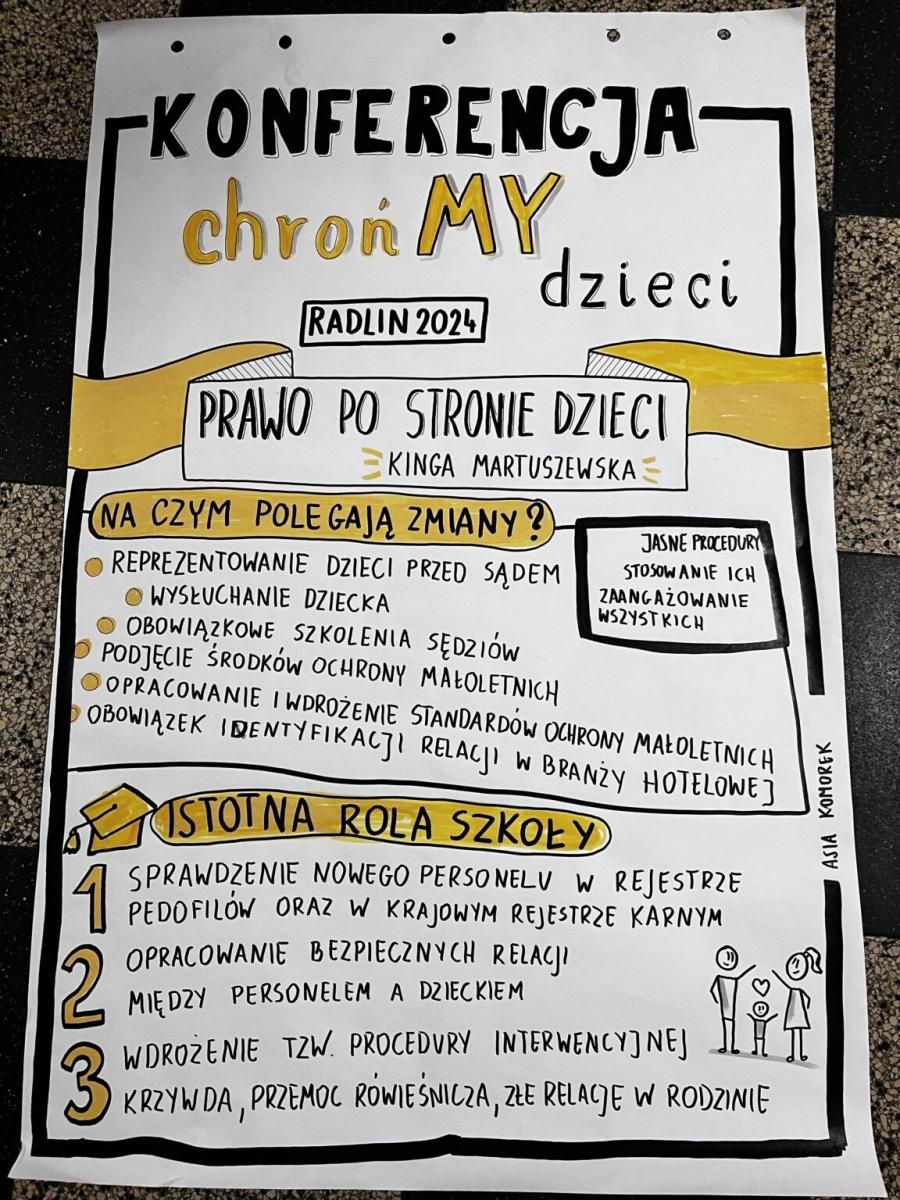 KONFERENCJA
chroń MY
dzieci
RADLIN 2024
PRAWO PO STRONIE DZIECI
KINGA MARTUSZEWSKA
NA CZYM POLEGAJĄ ZMIANY?
JASNE PROCEDURY
STOSOWANIE ICH
ZAANGAŻOWANIE
WSZYSTKICH
REPREZENTOWANIE DZIECI PRZED SĄDEM
WYSŁUCHANIE DZIECKA
OBOWIĄZKOWE SZKOLENIA SĘDZIÓW
PODJĘCIE ŚRODKÓW OCHRONY MAŁOLETNICH
OPRACOWANIE I WDROŻENIE STANDARDÓW OCHRONY MAŁOLETNICH
OBOWIĄZEK IDENTYFIKACJI RELACJI W BRANŻY HOTELOWEJ
ASIA KOMOREK
ISTOTNA ROLA SZKOŁY
1 SPRAWDZENIE NOWEGO PERSONELU W REJESTRZE
PEDOFILÓW ORAZ W KRAJOWYM REJESTRZE KARNYM
2 OPRACOWANIE BEZPIECZNYCH RELACJI
MIĘDZY PERSONELEM A DZIECKIEM
3 WDROŻENIE TZW. PROCEDURY INTERWENCYJNEJ
KRZYWDA, PRZEMOC RÓWIEŚNICZA, ZŁE RELACJE W RODZINIE